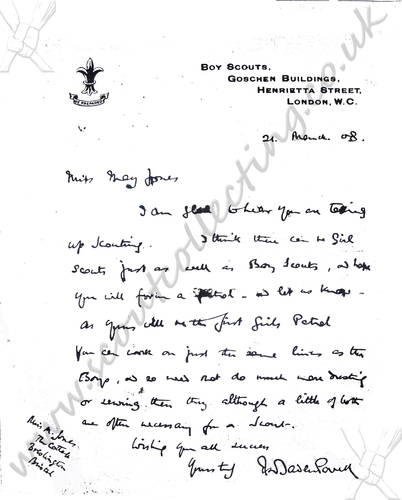 BE PREPARED
BOY SCOUTS,
GOSCHEN BUILDINGS,
HENRIETTA STREET,
LONDON, W.C.
21. March 08.
Miss May Jones
I am glad to hear you are taking
up Scouting. I think there can be Girl
Scouts just as well as Boy Scouts, and hope
you will form a patrol - and let us know -
as yours will be the first Girls Patrol
You can work on just the same lines as the
Boys, and so need not do much more
or sewing than they although a little of both
are often necessary for a Scout.
Wishing you all success
Yours R Baden Powell
Miss A. Jones.
The
Brislington
Bristol
www.scoutcollecting.co.uk